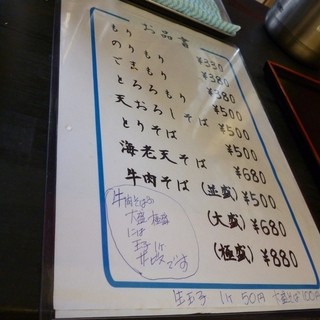 お品書
もり ¥330
のりもり ¥380
ごまもり ¥380
とろろもり ¥500
天おろしそば ¥500
とりそば ¥500
海老天そば ¥680
牛肉そば (並盛) ¥500
(大盛) ¥680
(極盛) ¥880
牛肉そばの
大盛・極盛
には
玉子 1ケ
サービスです
生玉子 1ケ 50円 大盛そば 100円